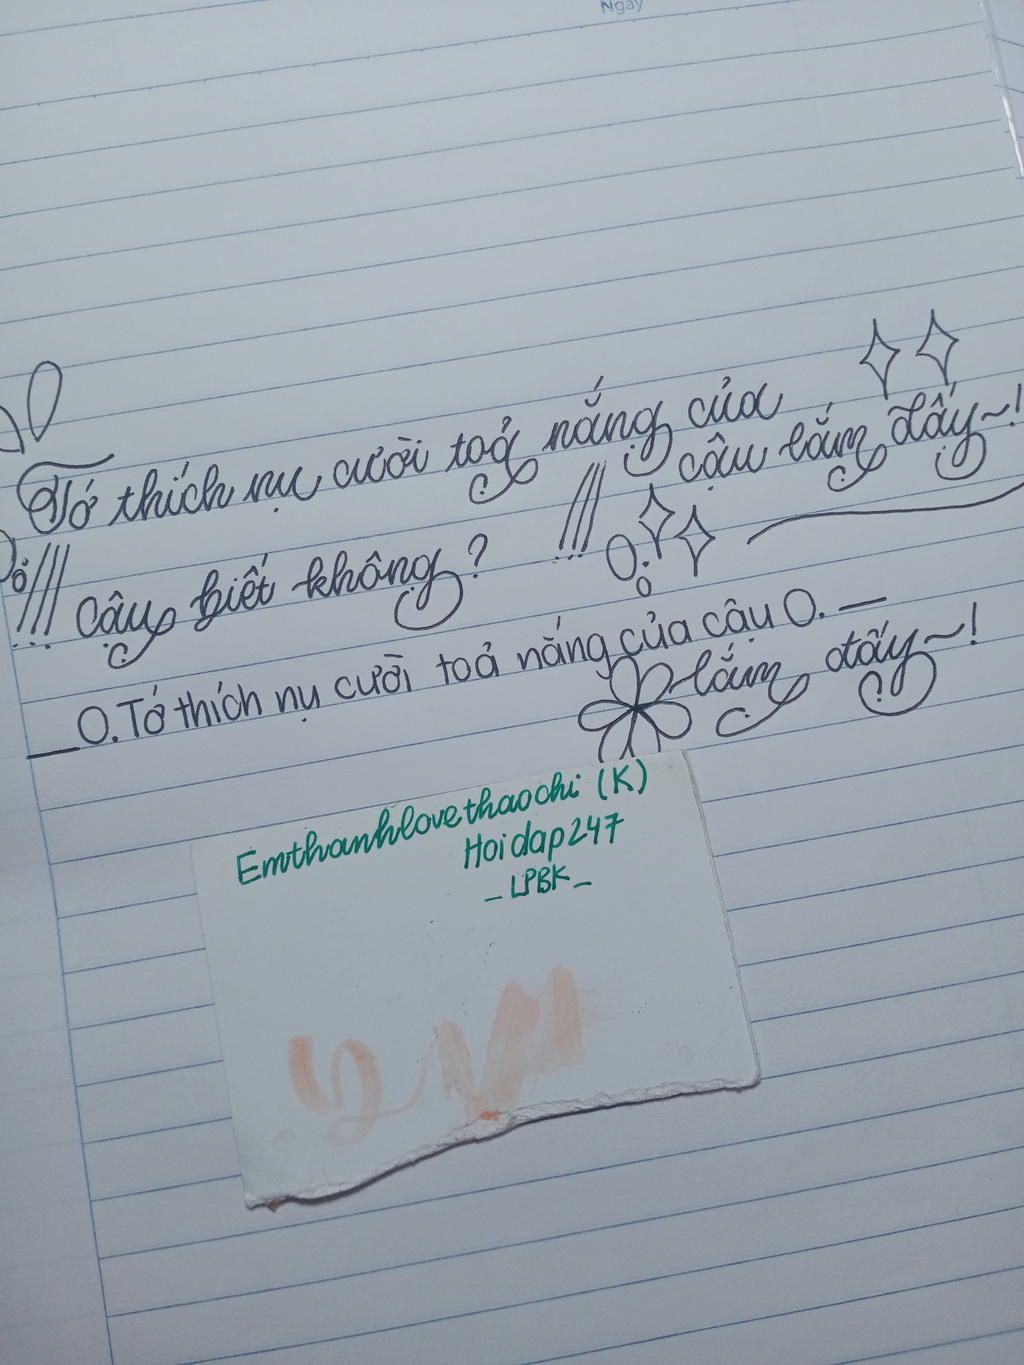 Ngày
Tớ thích nụ cười toả nắng của
cậu lắm đấy~!
Cậu biết không?
O.Tớ thích nụ cười toả nắng của cậu O.
lắm đấy~!
Emthanhlovethaochi (K)
Hoidap247
_LPBK_